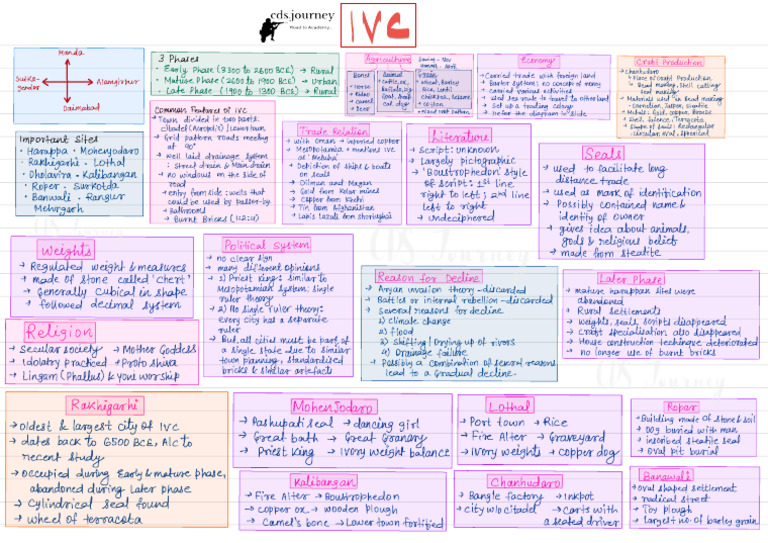 cds.journey
Road to Academy...
IVC
Manda
Sutka-
gendor
Alamgirpur
Daimabad
Important Sites
· Harappa · Mohenjodaro
· Rakhigarhi · Lothal
· Dholavira · Kalibangan
· Ropar · Surkotda
· Banwali · Rangpur
Mehrgarh
3 Phases
· Early Phase (3300 to 2600 BCE) → Rural
· Mature Phase (2600 to 1900 BCE) → Urban
· Late Phase (1900 to 1300 BCE) → Rural
Common Features of IVC
→ Town divided in two parts:
citadel (Acropolis) Lowertown
→ Grid pattern, roads meeting
at 90°
→ well laid drainage system
: street drain & Main drain
→ no windows on the side of
road
→ entry from side : wells that
could be used by passer-by
→ Bathrooms
→ Burnt Bricks (4:2:1)
Agriculture
Animal
Economy
→ Carried trade with foreign land
→ Barter system; no concept of money
→ carried various activities
→ used sea route to travel to other land
→ Set up a trading colony
→ refer the diagram in slide
Craft Production
→ Chanhudaro
→ Materials used in bead making
Trade Relation
→ with Oman → imported copper
→ Mesopotamia → marked IVC
as 'Meluha'
→ Depiction of ships & boats
on seals
→ Dilmun and Magan
→ Gold from Kolar mines
→ Copper from Khetri
→ Tin from Afghanistan
→ Lapis Lazuli from Shortughai
Literature
→ Script: unknown
→ largely pictographic
→ 'Boustrophedon' style
of script: 1st line
right to left; 2nd line
left to right
→ undeciphered
Seals
→ used to facilitate long
distance trade
→ used as mark of identification
→ Possibly contained name &
identity of owner
→ gives idea about animals,
gods & religious belief
→ made from steatite
Weights
→ Regulated weight & measures
→ made of stone called 'chert'
→ Generally Cubical in shape
→ followed decimal system
Political System
→ no clear sign
→ many different opinions
→ 1) Priest kings: similar to
Mesopotamian System: single
ruler theory
→ 2) No single ruler theory:
Every city has a separate
ruler
→ But, all cities must be part of
a single state due to similar
town planning, standardised
bricks & similar artefacts
Reason for Decline
→ Aryan invasion theory - discarded
→ Battles or internal rebellion - discarded
→ Several reasons for decline
1) climate change
2) flood
3) Shifting/Drying up of rivers
4) Drainage failure
→ Possibly a combination of several reasons
lead to a gradual decline.
Later Phase
→ mature harappan sites were
abandoned
→ Rural settlements
→ weights, seals, scripts disappeared
→ craft specialisation also disappeared
→ House construction technique deteriorated
→ no longer use of burnt bricks
Religion
→ Secular society → Mother Goddess
→ Idolatry practiced → Proto Shiva
→ Lingam (Phallus) & youi worship
Rakhigarhi
→ oldest & largest city of IVC
→ dates back to 6500 BCE, A/c to
recent study
→ occupied during Early & mature phase,
abandoned during Later phase
→ Cylindrical seal found
→ wheel of terracota
Mohenjodaro
→ Pashupati seal → dancing girl
→ Great bath → Great Granery
→ Priest King → Ivory weight balance
Lothal
→ Port town → Rice
→ Fire Alter → Graveyard
→ Ivory weights → copper dog
Ropar
→ Building made of stone & soil
→ Dog buried with man
→ inscribed steatite seal
→ oval pit burial
Kalibangan
→ Fire Alter → Boustrophedon
→ copper ox → wooden plough
→ Camel's bone → Lower town fortified
Chanhudaro
→ Bangle factory → Inkpot
→ city w/o citadel → Carts with
a seated driver
Banawali
→ oval shaped settlement
→ radical street
→ Toy plough
→ largest no. of barley grain
CDS Journey
CDS Journey